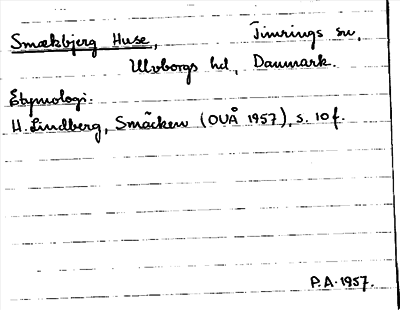 Smækbjerg Huse, Timrings sn,
Ulvborgs hd, Danmark.
Etymologi:
H. Lindberg, Smäcken (OUÅ 1957), s. 10 f.
P.A. 1957.